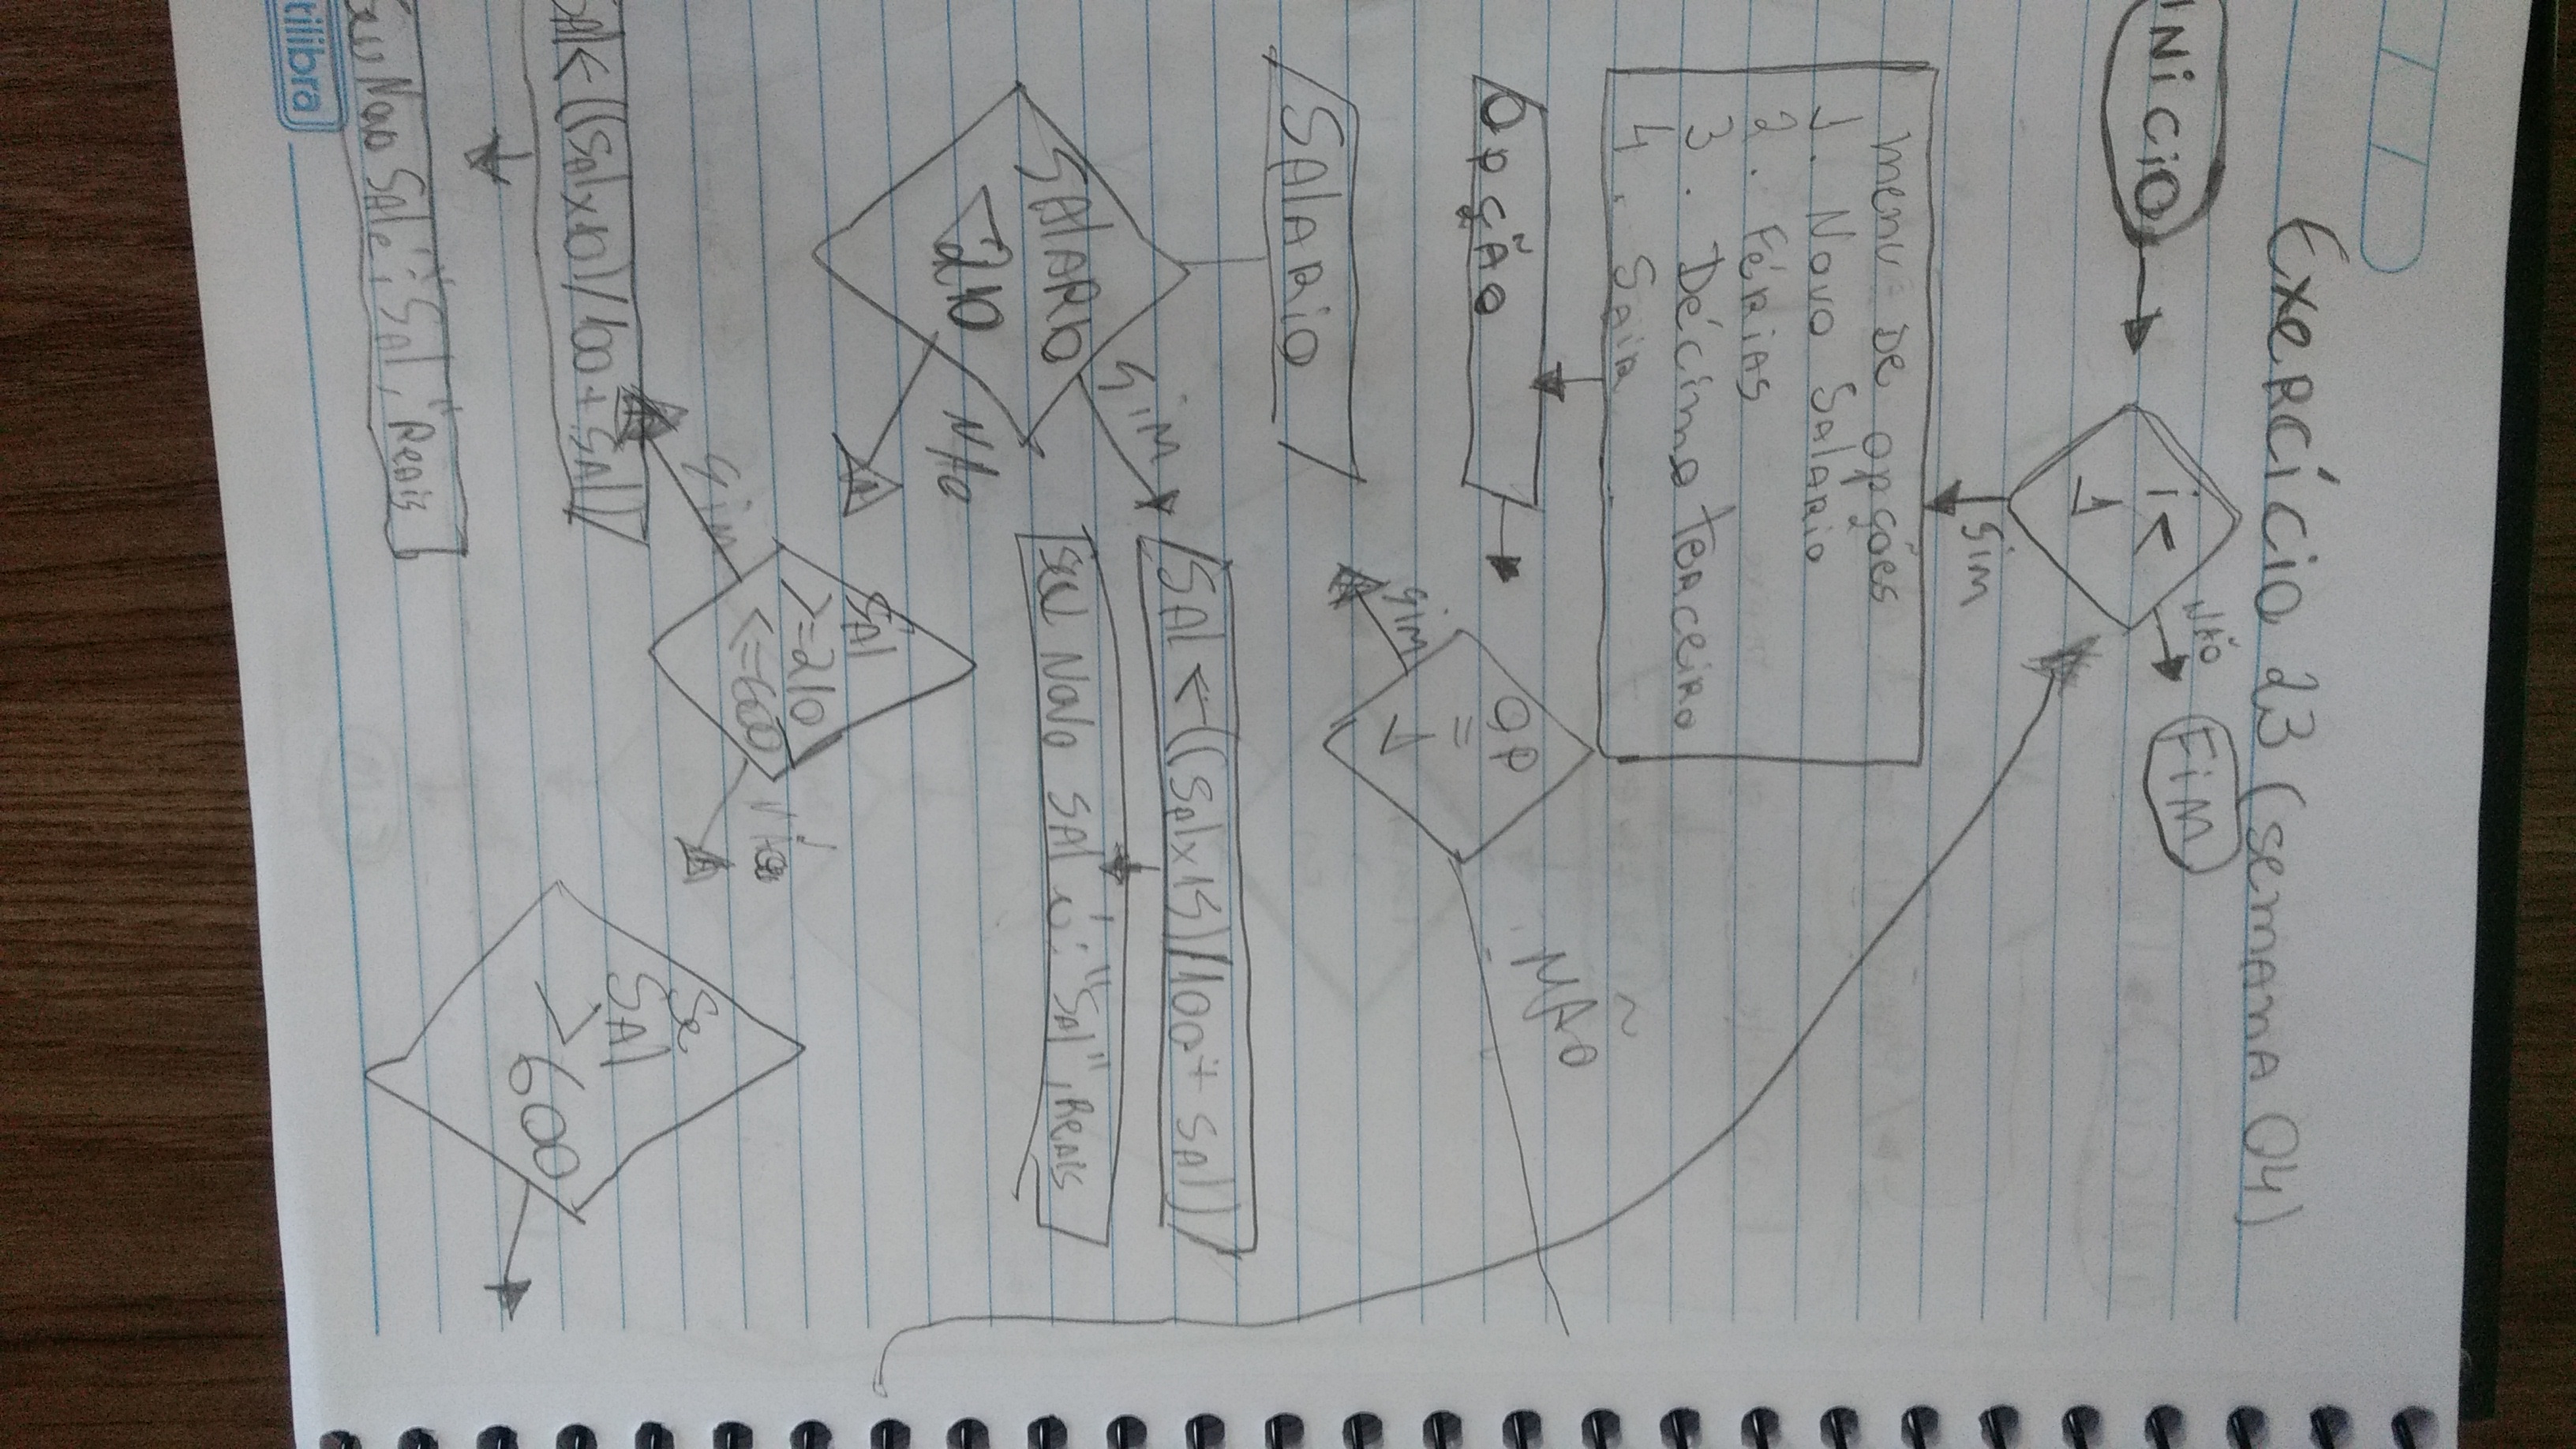 Exercício 23 (semana 04)
INICIO
i<
1
NÃO
FIM
SIM
menu de opções
1. Novo Salario
2. Férias
3. Décimo terceiro
4. Sair
Opção
OP
=
1
NÃO
SIM
SALARIO
SALARIO
<210
SIM
SAL ← ((SALx15)/100+ SAL)
Seu Novo SAL é: "SAL", Reais
NÃO
SAL
>=210
<=600
SIM
NÃO
SAL ← ((SALx10)/100+SAL)
Seu Novo SAL é: "SAL", Reais
Se
SAL
>600
tilibra